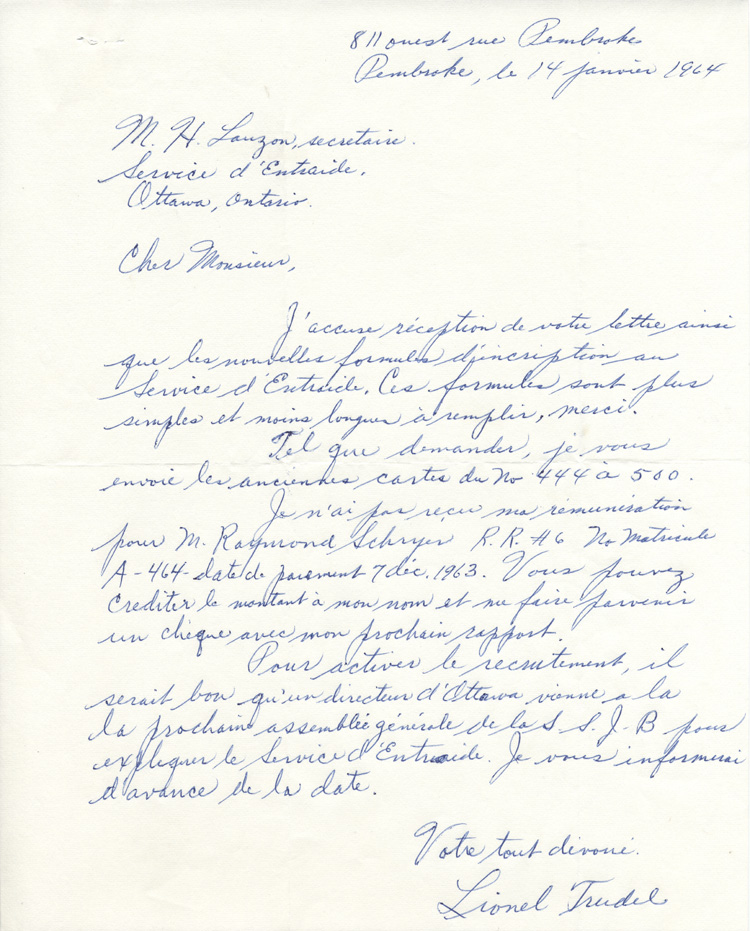 811 ouest rue Pembroke
Pembroke, le 14 janvier 1964
M. H. Lauzon, secretaire.
Service d'Entraide.
Ottawa, Ontario.
Cher Monsieur,
J'accuse réception de votre lettre ainsi
que les nouvelles formules d'incription au
Service d'Entraide. Ces formules sont plus
simples et moins longues à remplir, merci.
Tel que demander, je vous
envoie les anciennes cartes du No 444 à 500.
Je n'ai pas reçu ma rémunération
pour M. Raymond Schryer R.R. #6 No Matricule
A-464-date de paiement 7 déc. 1963. Vous pouvez
créditer le montant à mon nom et me faire parvenir
un chèque avec mon prochain rapport.
Pour activer le recrutement, il
serait bon qu'un directeur d'Ottawa vienne a la
la prochain assemblée générale de la S. S. J-B pour
expliquer le Service d'Entraide. Je vous informerai
d'avance de la date.
Votre tout dévoué.
Lionel Trudel